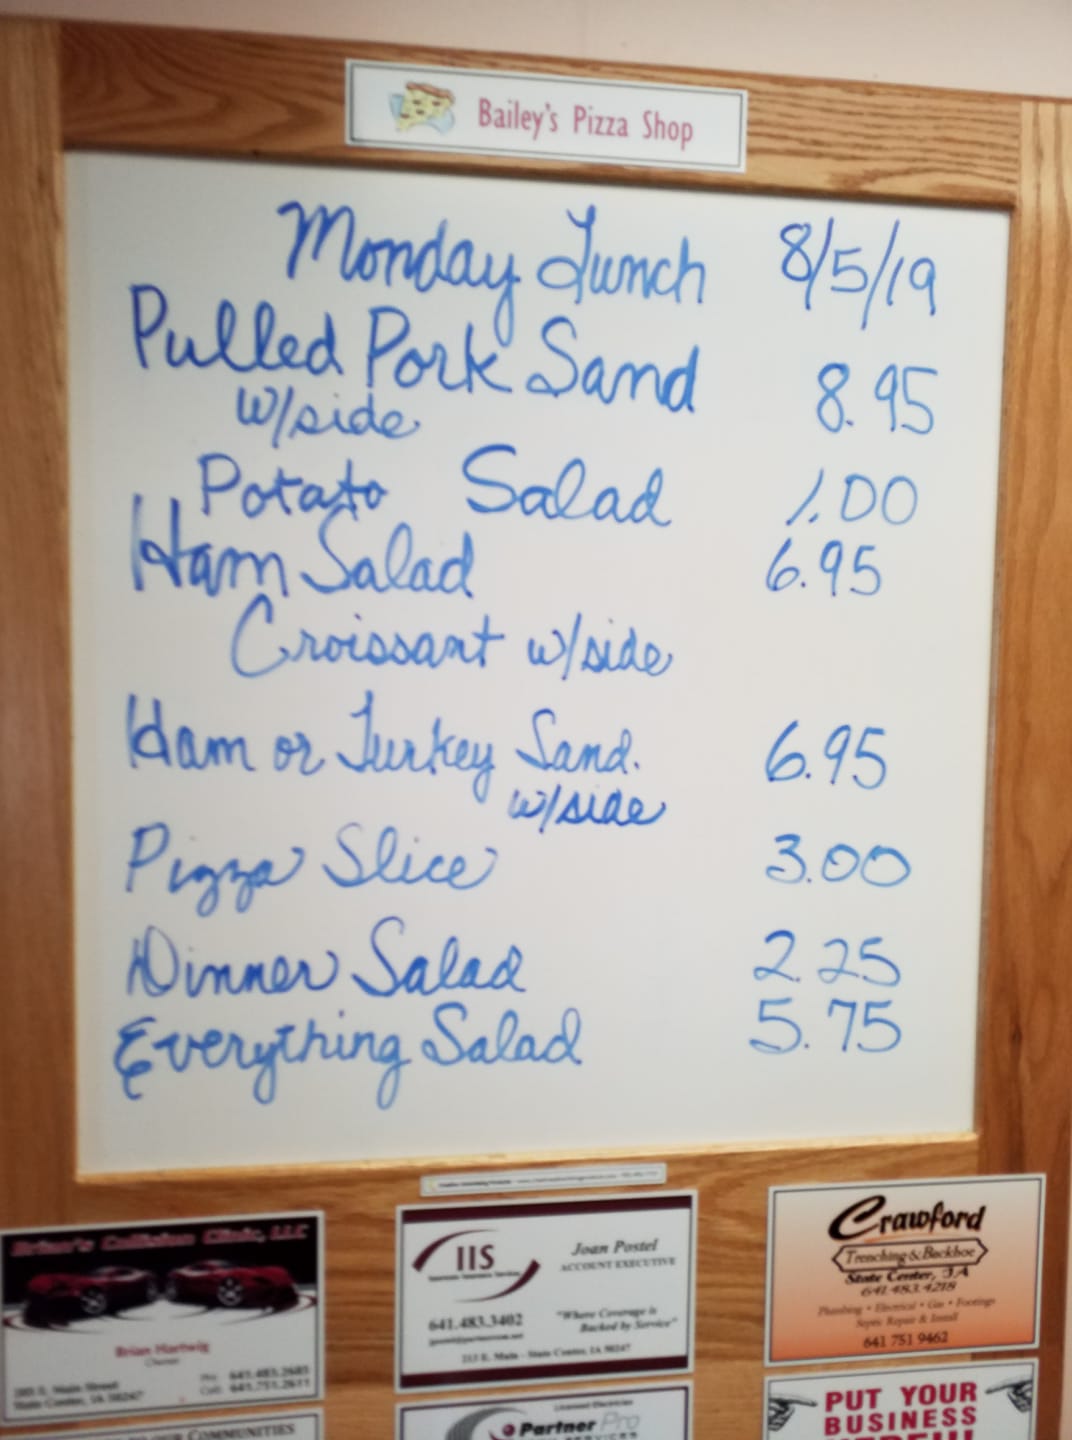 Bailey's Pizza Shop
Monday Lunch 8/5/19
Pulled Pork Sand 8.95
w/side
Potato Salad 1.00
Ham Salad 6.95
Croissant w/side
Ham or Turkey Sand. 6.95
w/side
Pizza Slice 3.00
Dinner Salad 2.25
Everything Salad 5.75
Brian's Collision Clinic, LLC
Brian Hartwig
Owner
State Center, IA 50247
IIS
Joan Postel
ACCOUNT EXECUTIVE
641.483.3402
"Where Coverage is
Backed by Service"
213 E. Main - State Center, IA 50247
Crawford
Trenching & Backhoe
State Center, IA
641.483.4218
Plumbing • Electrical • Gas • Footings
Septic Repair & Install
641 751 9462
COMMUNITIES
Licensed Electrician
Partner Pro
PUT YOUR
BUSINESS
HERE!!!